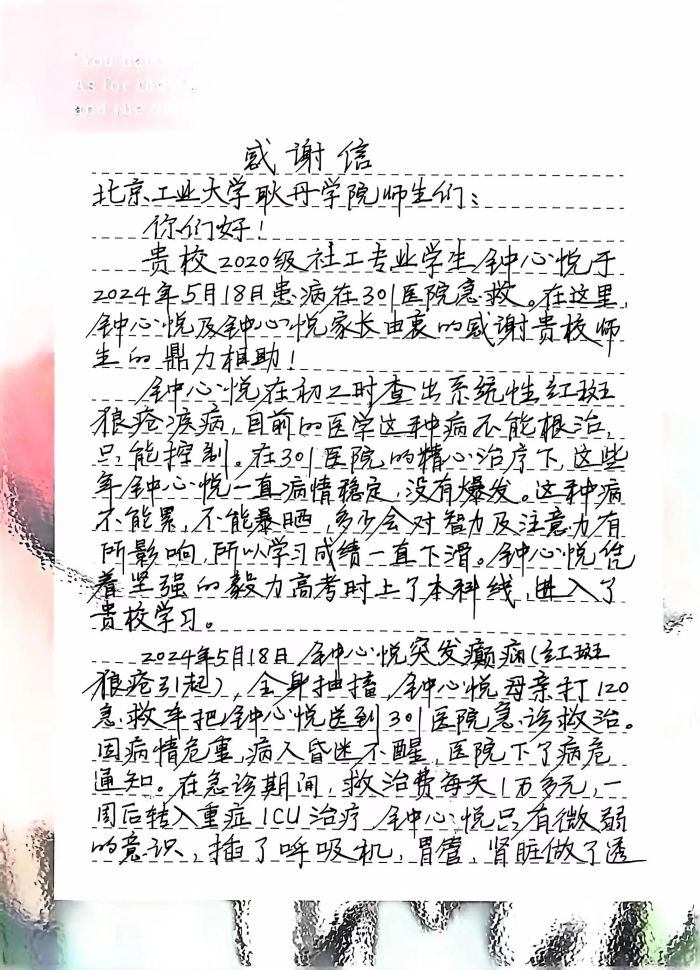 "You have
As for the
and the
感谢信
北京工业大学耿丹学院师生们：
你们好！
贵校2020级社工专业学生钟心悦于
2024年5月18日患病在301医院急救。在这里，
钟心悦及钟心悦家长由衷的感谢贵校师
生的鼎力相助！
钟心悦在初二时查出系统性红斑
狼疮疾病，目前的医学这种病不能根治，
只能控制。在301医院的精心治疗下，这些
年钟心悦一直病情稳定，没有爆发。这种病
不能累，不能暴晒，多少会对智力及注意力有
所影响，所以学习成绩一直下滑。钟心悦凭
着坚强的毅力高考时上了本科线，进入了
贵校学习。
2024年5月18日，钟心悦突发癫痫（红斑
狼疮引起），全身抽搐，钟心悦母亲打120
急救车把钟心悦送到301医院急诊救治。
因病情危重，病人昏迷不醒，医院下了病危
通知。在急诊期间，救治费每天1万多元，一
周后转入重症ICU治疗，钟心悦只有微弱
的意识，插了呼吸机，胃管，肾脏做了透